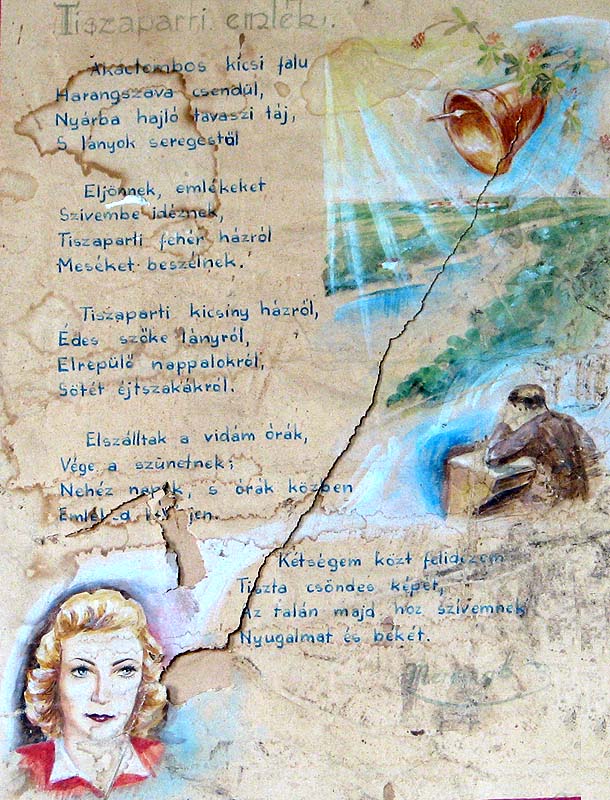 Tiszaparti emlék.
Akáclombos kicsi falu
Harangszava csendül,
Nyárba hajló tavaszi táj,
S lányok seregestül
Eljönnek, emlékeket
Szivembe idéznek,
Tiszaparti fehér házról
Meséket beszélnek.
Tiszaparti kicsiny házról,
Édes szőke lányról,
Elrepülő nappalokról,
Sötét éjtszakákról.
Elszálltak a vidám órák,
Vége a szünetnek;
Nehéz napok, s órák közben
Kétségem közt felidézem
Tiszta csöndes képét,
Az talán majd hoz szivemnek
Nyugalmat és békét.